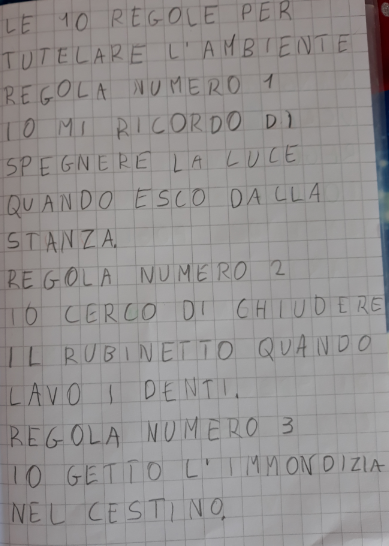 LE 10 REGOLE PER
TUTELARE L'AMBIENTE
REGOLA NUMERO 1
IO MI RICORDO DI
SPEGNERE LA LUCE
QUANDO ESCO DALLA
STANZA.
REGOLA NUMERO 2
IO CERCO DI CHIUDERE
IL RUBINETTO QUANDO
LAVO I DENTI.
REGOLA NUMERO 3
IO GETTO L'IMMONDIZIA
NEL CESTINO.